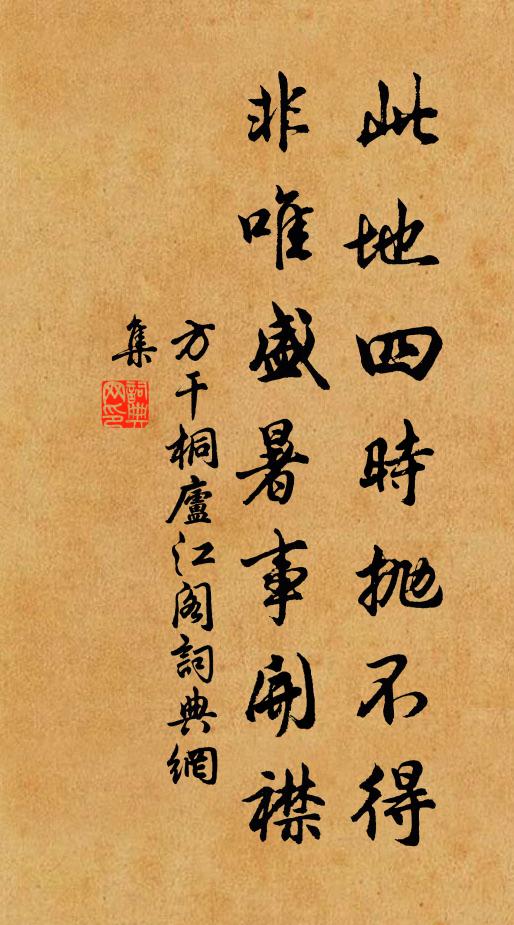 此地四時抛不得
非唯盛暑事開襟
方干桐廬江閣詞典網
集
詞典網印